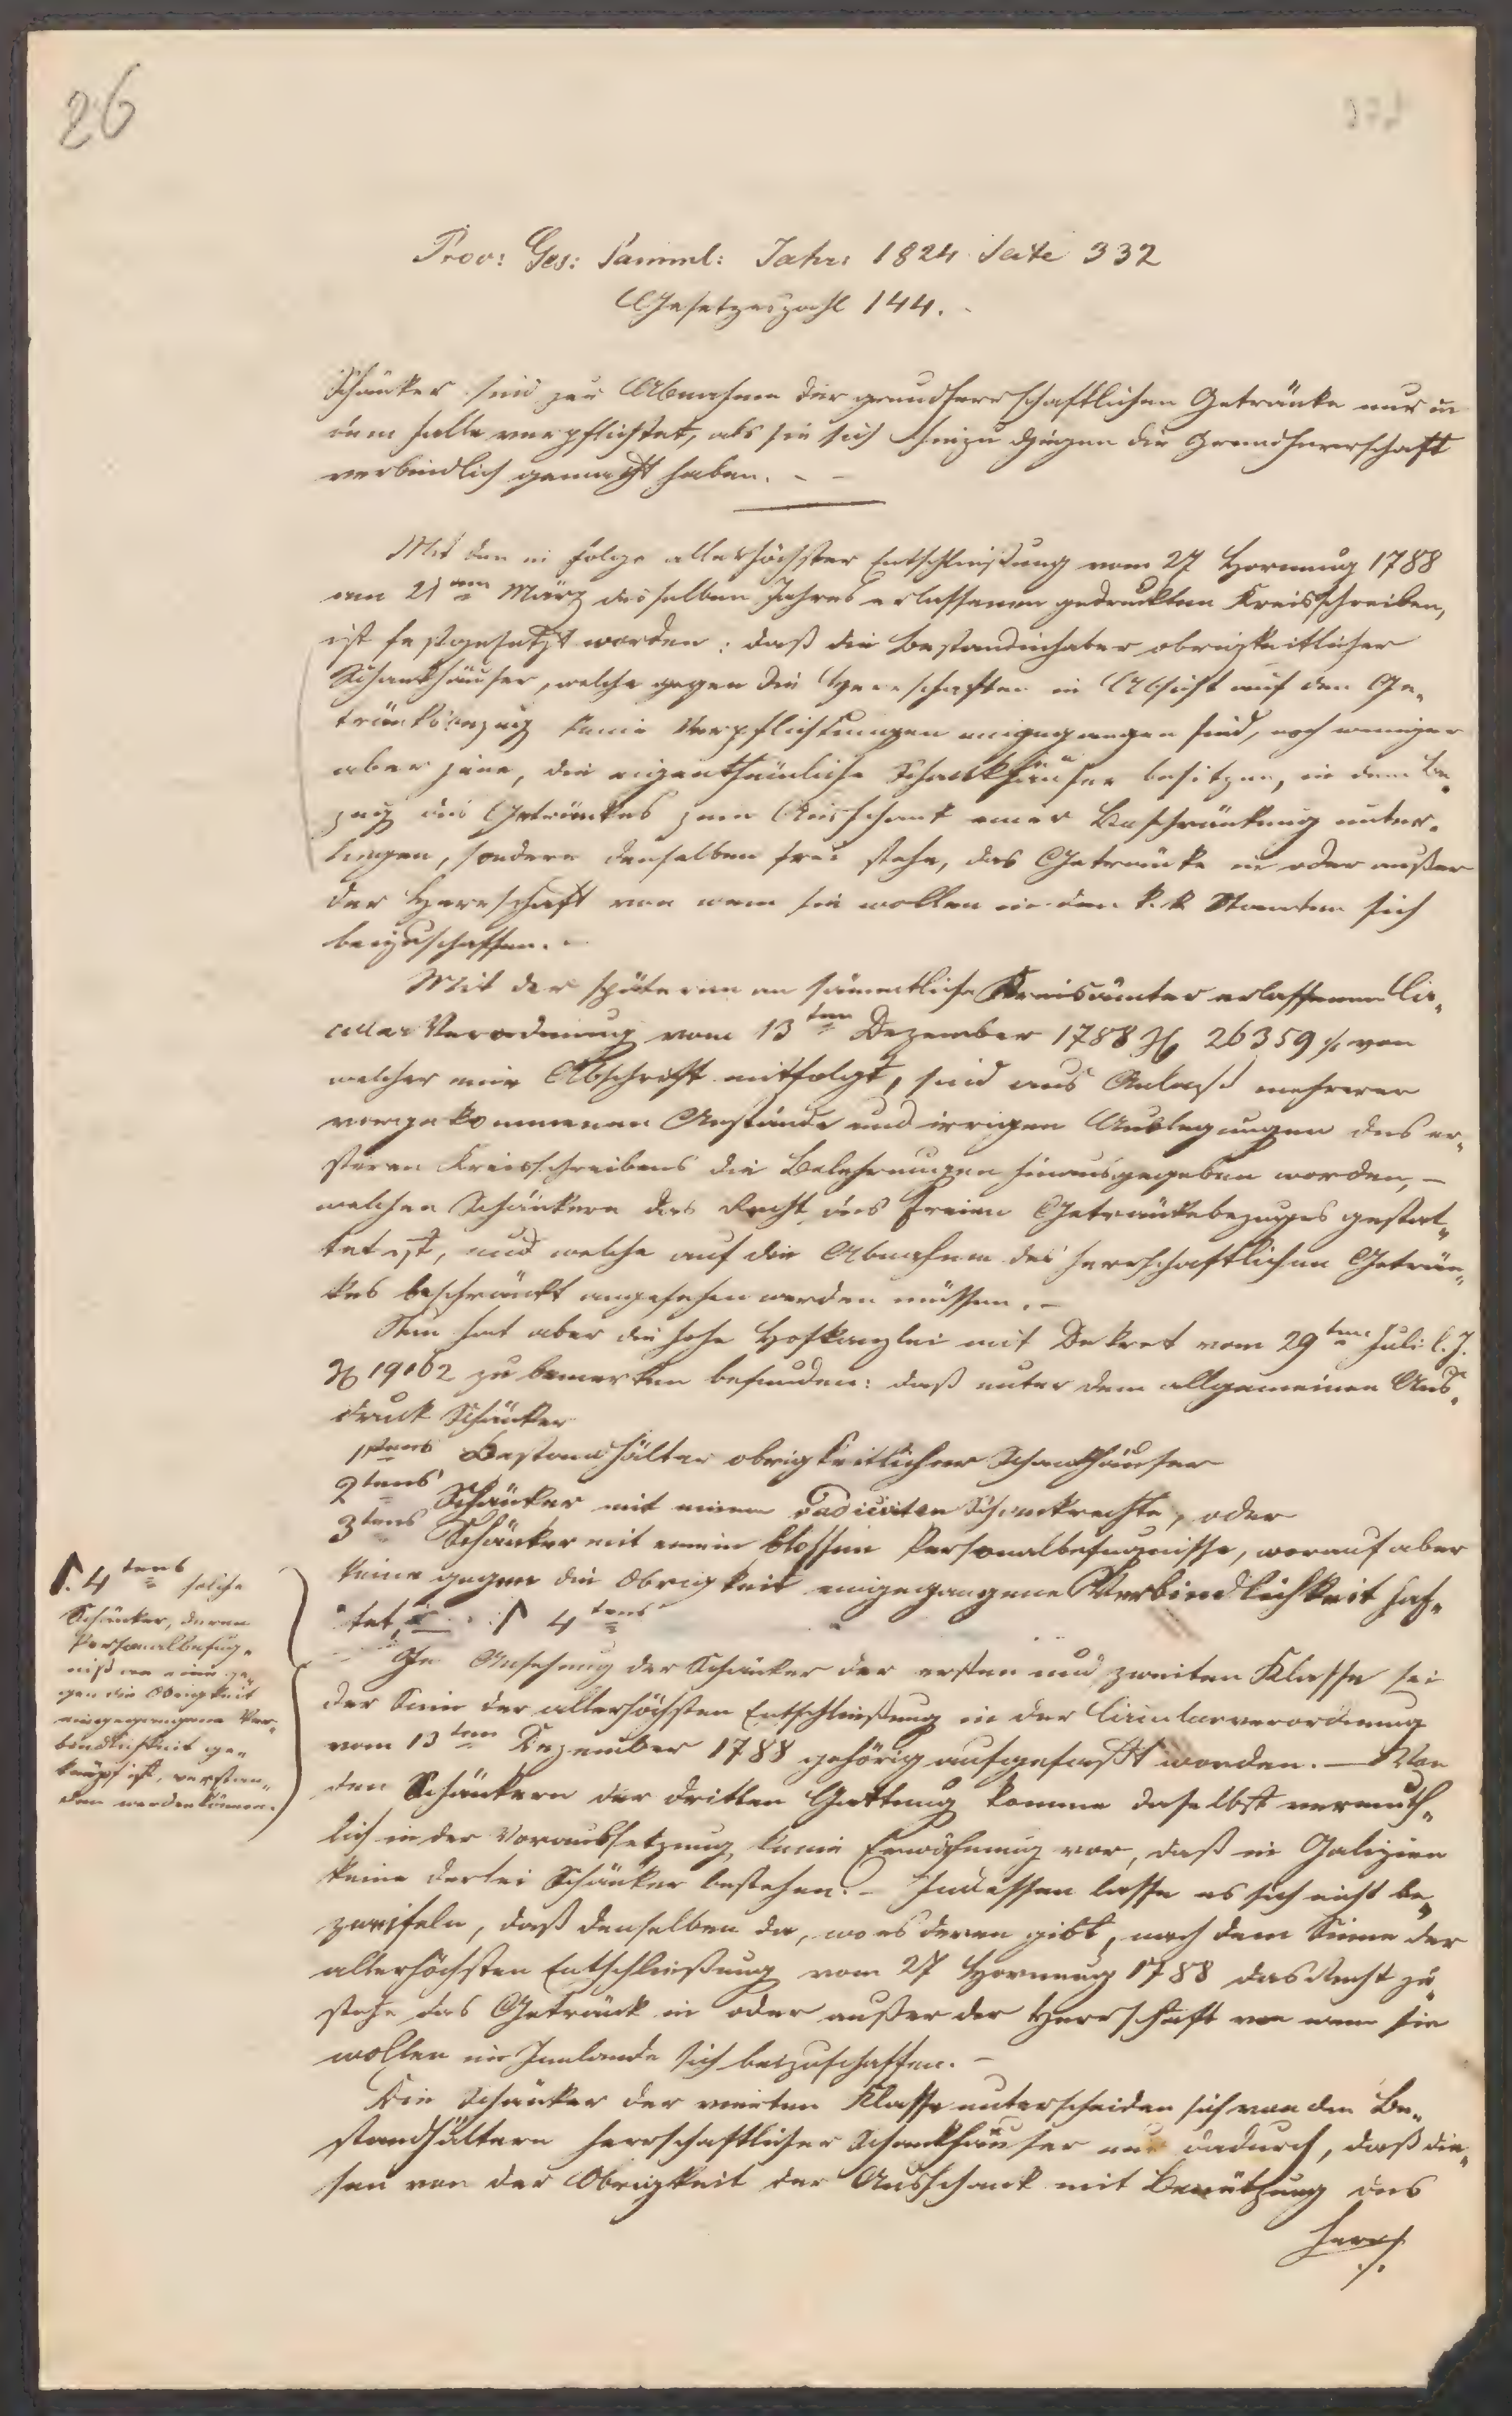 26
Prov: Ges: Samml: Jahr: 1824 Seite 332
Gesetzeszahl 144.
Schänker sind zur Abnahme der grundherrschaftlichen Getränke nur in
dem Falle verpflichtet, als sie sich hiezu gegen die Grundherrschaft
verbindlich gemacht haben.
Mit den in Folge allerhöchster Entschließung vom 27 Hornung 1788
am 21ten März desselben Jahres erlassenen gedruckten Kreisschreiben,
ist festgesetzt worden: daß die Bestandinhaber obrigkeitlicher
Schankhäuser, welche gegen die Herrschaften in Absicht auf den Ge„
tränksbezug keine Verpflichtungen eingegangen sind, noch weniger
aber jene, die eigenthümliche Schankhäuser besitzen, in dem Be„
zug des Getränkes zum Ausschank einer Beschränkung unter„
liegen, sondern denselben frei stehe, das Getränke in oder außer
der Herrschaft von wem sie wollen in den k. k. Staaten sich
beizuschaffen. –
Mit der späteren an sämmtliche Kreisämter erlassenen Cir„
cular Verordnung vom 13ten Dezember 1788 Z. 26359 ./. von
welcher eine Abschrift mitfolgt, sind aus Anlaß mehrerer
vorgekommenen Anstände und irrigen Auslegungen des er„
steren Kreisschreibens die Belehrungen hinausgegeben worden, –
welchen Schänkern das Recht des freien Getränkebezuges gestat„
tet ist, und welche auf die Abnahme des herrschaftlichen Geträn„
kes beschränkt angesehen werden müssen. –
Nun hat aber die hohe Hofkanzlei mit Dekret vom 29ten Juli l. J.
Z. 19162 zu bemerken befunden: daß unter dem allgemeinen Aus„
druck Schänker
1stens Bestandhälter obrigkeitlicher Schankhäuser
2tens Schänker mit einem radicirten Schankrechte, oder
3tens Schänker mit einem blossen Personalbefugnisse, worauf aber
keine gegen die Obrigkeit eingegangene Verbindlichkeit haf„
tet, 4tens
4tens solche
Schänker, deren
Personalbefug„
niß an eine ge„
gen die Obrigkeit
eingegangene Ver„
bindlichkeit ge„
knüpft ist, verstan„
den werden können.
In Ansehung der Schänker der ersten und zweiten Klasse sei
der Sinn der allerhöchsten Entschließung in der Circularverordnung
vom 13ten Dezember 1788 gehörig aufgefaßt worden. – Von
den Schänkern der dritten Gattung komme daselbst vermuth„
lich in der Voraussetzung keine Erwähnung vor, daß in Galizien
keine derlei Schänker bestehen. – Indessen lasse es sich nicht be„
zweifeln, daß denselben da, wo es deren gibt, nach dem Sinne der
allerhöchsten Entschließung vom 27 Hornung 1788 das Recht zu„
stehe das Getränk in oder außer der Herrschaft von wem sie
wollen im Innlande sich beizuschaffen. –
Die Schänker der vierten Klasse unterscheiden sich von den Be„
standhältern herrschaftlicher Schankhäuser nur dadurch, daß die„
sen von der Obrigkeit der Ausschank mit Benützung des
herrs
./.